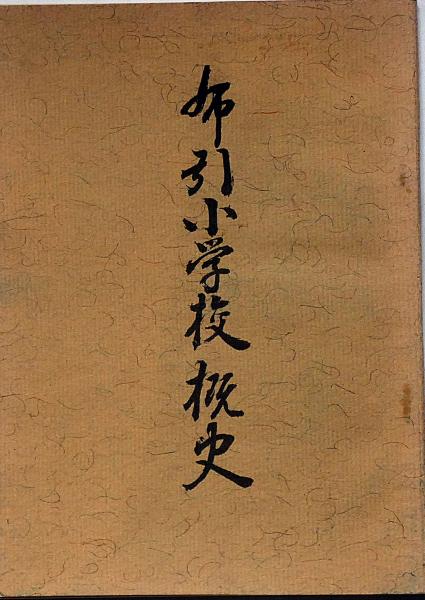 布引小学校概史